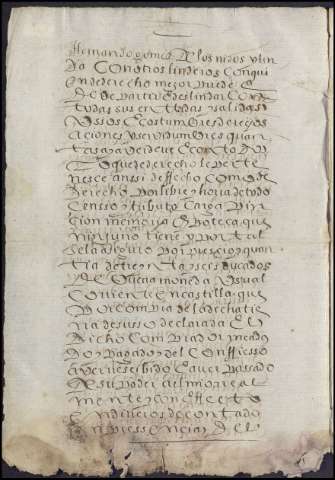 Hernando gomez de los nidos y lin
da con otros linderos con qui
en de derecho mejor puede
e deve partir e deslindar con
todas sus entradas salidas
usos e costumbres derechos
aciones y servidumbres quan
tas a y deve e
to que de derecho le perte
nesce ansi de fecho como de
derecho por libre y horra de todo
censso e tributo carga vin
cion memoria e ypoteca que
ninguno tiene y por tal
se la aseguro por prescio y quan
tia de treinta y seis ducados
de buena moneda usual
corriente en castilla que
por compra de la dicha tie
rra de suso declarada el
dicho comprador me a da
do y pagado y del confiesso
aver rescibido e aver pasado
a su poder al mio real
mente y con efecto
en dineros de contado
en pressencia del